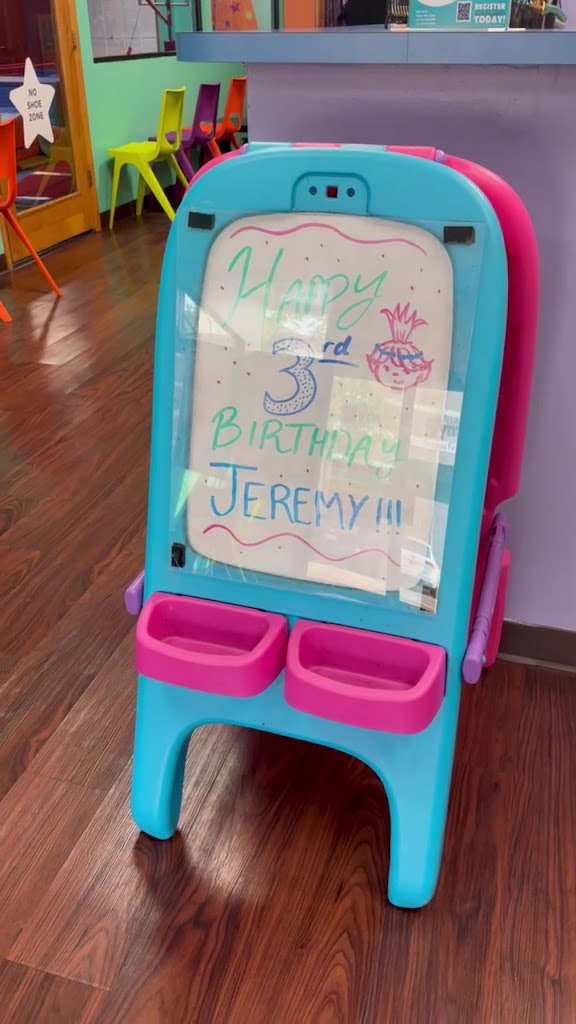 REGISTER
TODAY!
NO
SHOE
ZONE
HAPPY
3rd
BIRTHDAY
JEREMY!!!